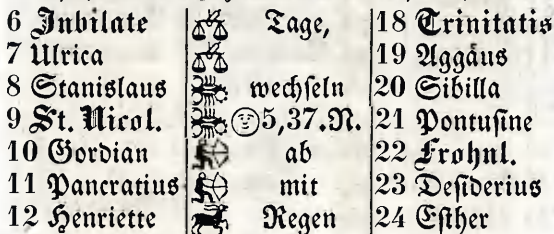 6 Jubilate Tage, 18 Trinitatis
7 Ulrica 19 Aggäus
8 Stanislaus wechseln 20 Sibilla
9 St. Nicol. 5,37.N. 21 Pontusine
10 Gordian ab 22 Frohnl.
11 Pancratius mit 23 Desiderius
12 Henriette Regen 24 Esther